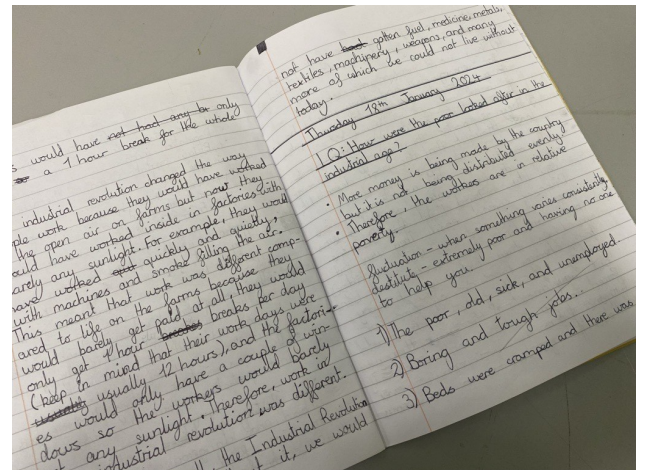 s would have not had any br only
a 1 hour break for the whole
industrial revolution changed the way
ple work because they would have worked
the open air on farms but now they
ould have worked inside in factories with
arely any sunlight. For example, they would
have worked quickly and quietly,
with machines and smoke filling the air.
This meant that work was different comp-
ared to life on the farms because they
would barely get paid at all, they would
only get 1 hour breaks per day
(keep in mind that their work days were
usually usually 12 hours), and the factori-
es would only have a couple of win-
dows so the workers would barely
any sunlight. Therefore, work in
industrial revolution was different.
the Industrial Revolution
it, we would
not have gotten fuel, medicine, metals,
textiles, machinery, weapons, and many
more of which we could not live without
today.
Thursday 18th January 2024
LQ: How were the poor looked after in the
industrial age?
• More money is being made by the country
but it is not being distributed evenly.
• Therefore, the workers are in relative
poverty.
fluctuation - when something varies consistently
destitute - extremely poor and having no one
to help you.
1) The poor, old, sick, and unemployed.
2) Boring and tough jobs...
3) Beds were cramped and there was